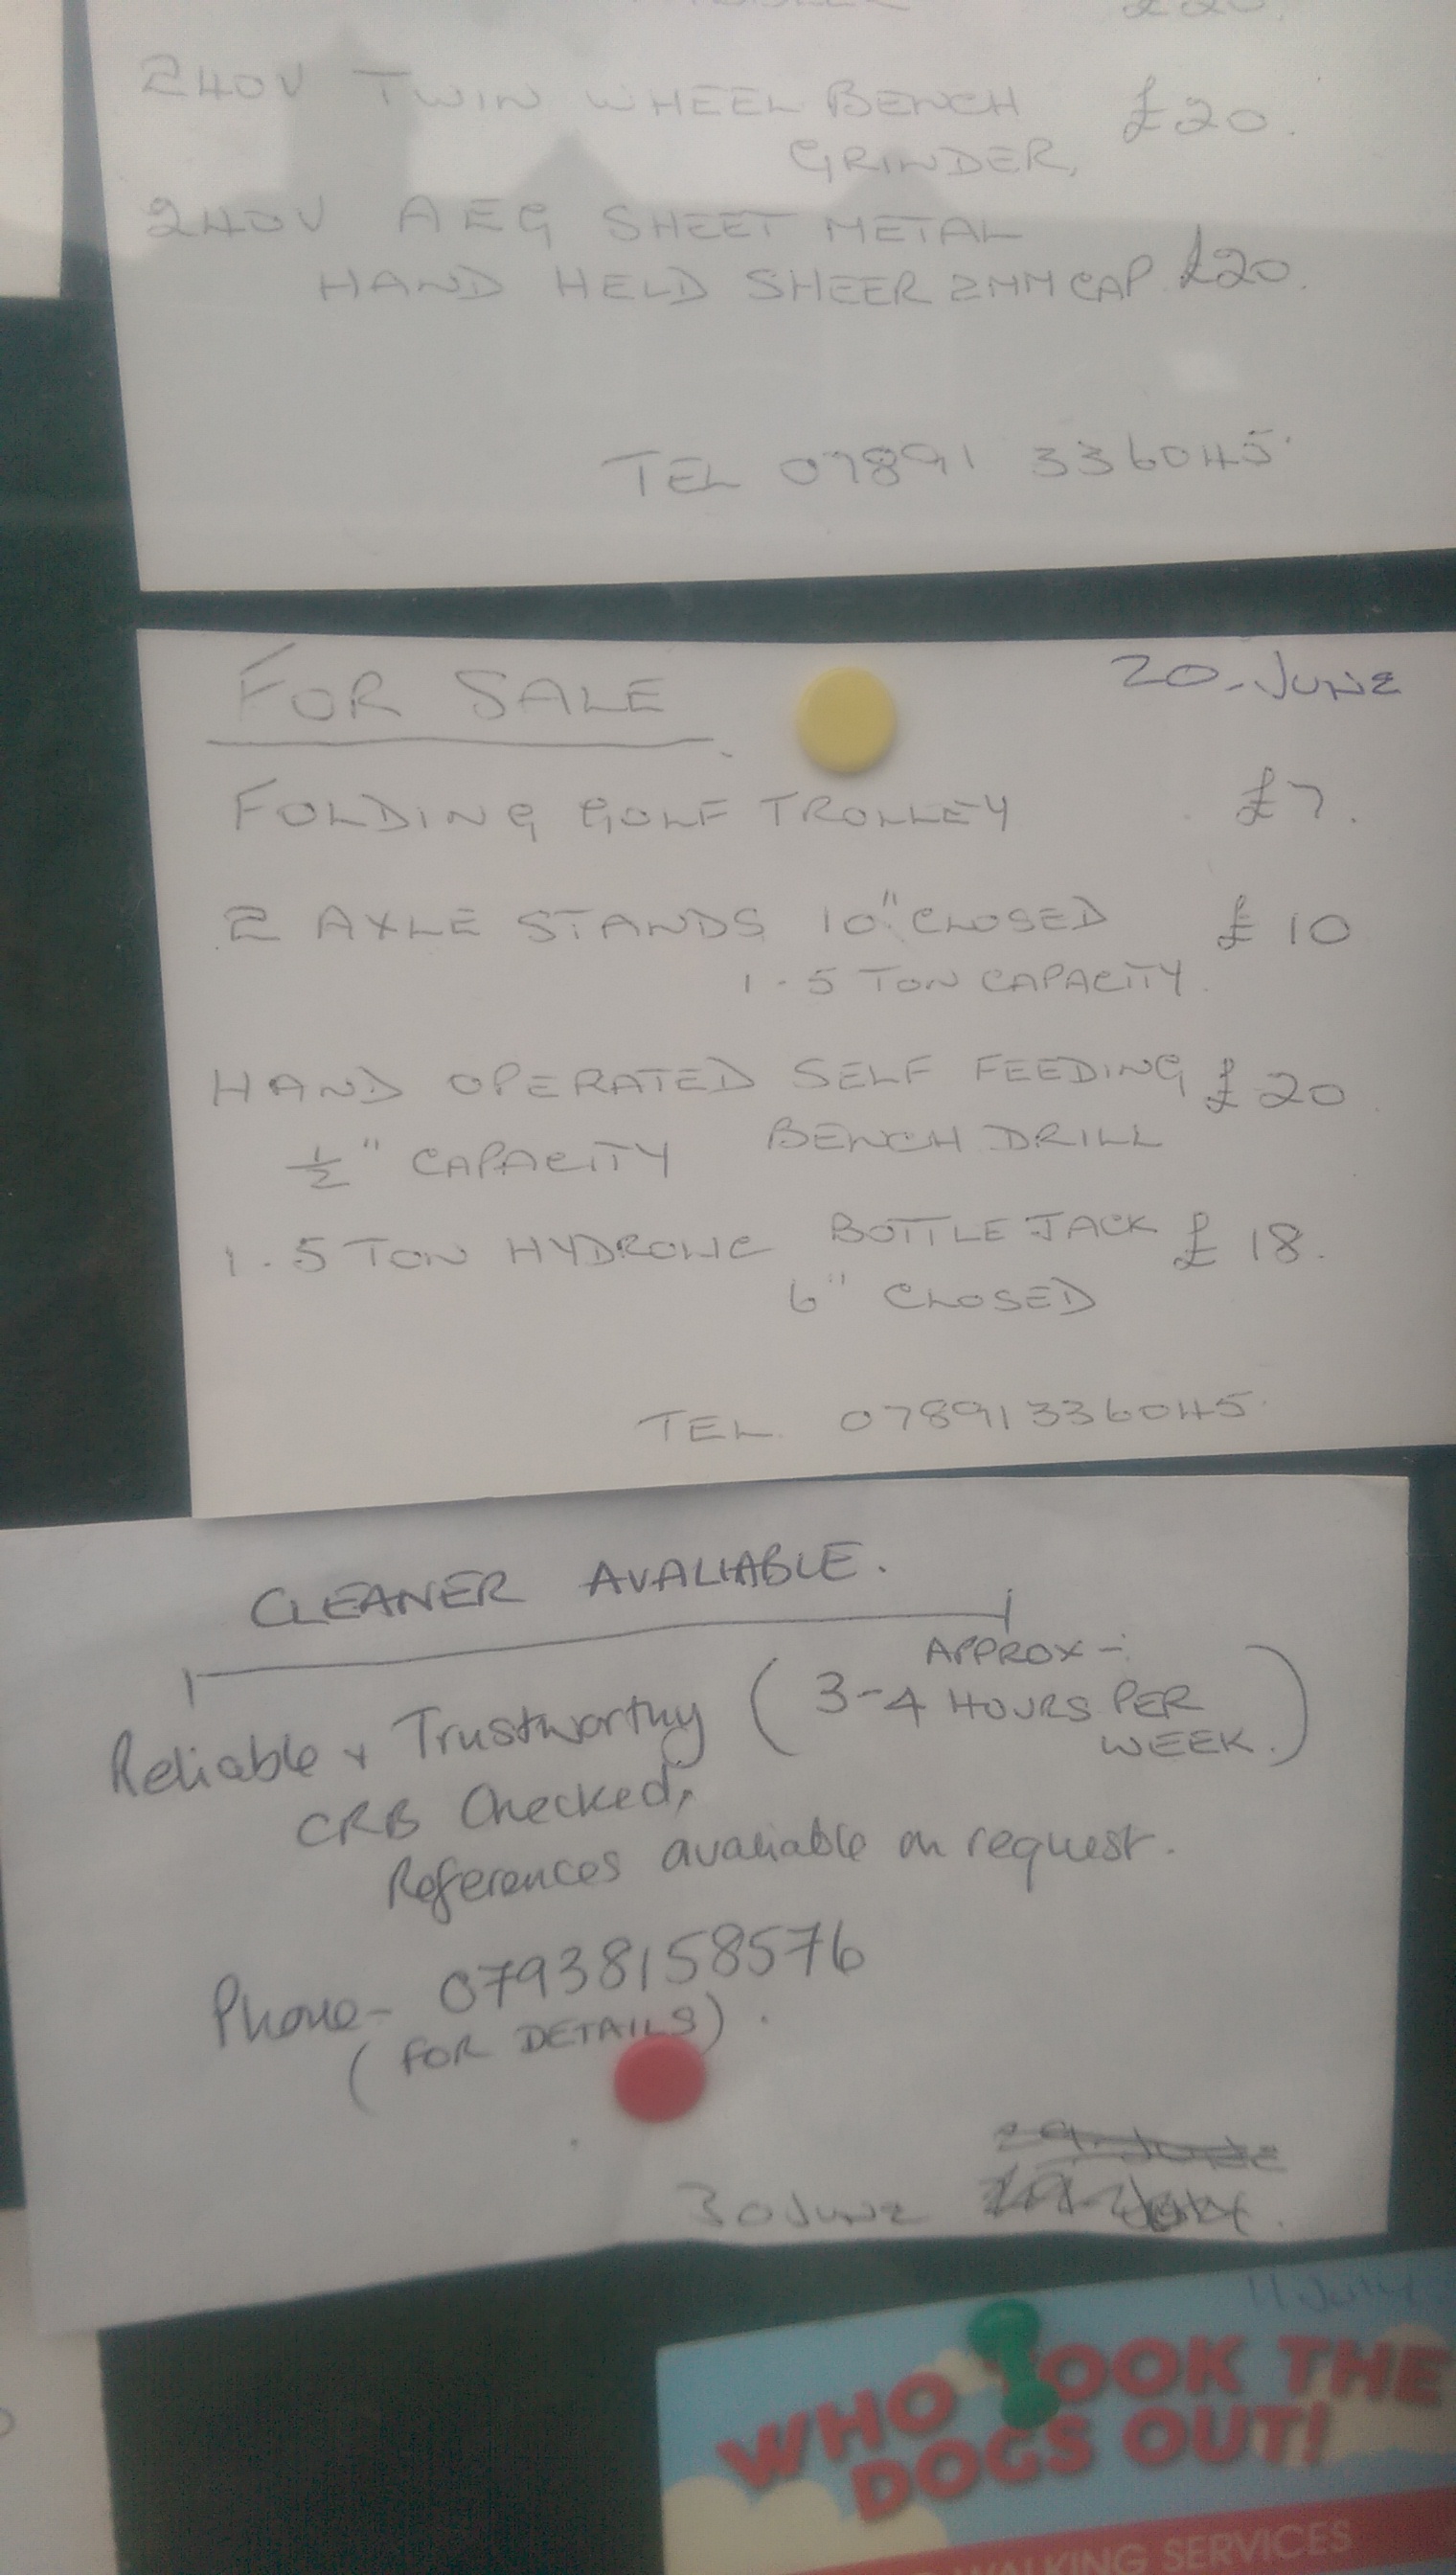 £20.
240V TWIN WHEEL BENCH £20.
GRINDER,
240V AEG SHEET METAL
HAND HELD SHEER 2MM CAP £20.
TEL 07891 336045
FOR SALE 20-JUNE
FOLDING GOLF TROLLEY £7.
2 AXLE STANDS 10" CLOSED £10
1.5 TON CAPACITY.
HAND OPERATED SELF FEEDING £20
½" CAPACITY BENCH DRILL
1.5 TON HYDROLIC BOTTLE JACK £18.
6" CLOSED
TEL. 07891336045
CLEANER AVALIABLE.
APPROX-:
Reliable + Trustworthy (3-4 HOURS PER
WEEK.)
CRB Checked,
References avaliable on request.
Phone- 07938158576
(FOR DETAILS).
29-June
30 June
11 July
WHO TOOK THE
DOGS OUT!
WALKING SERVICES